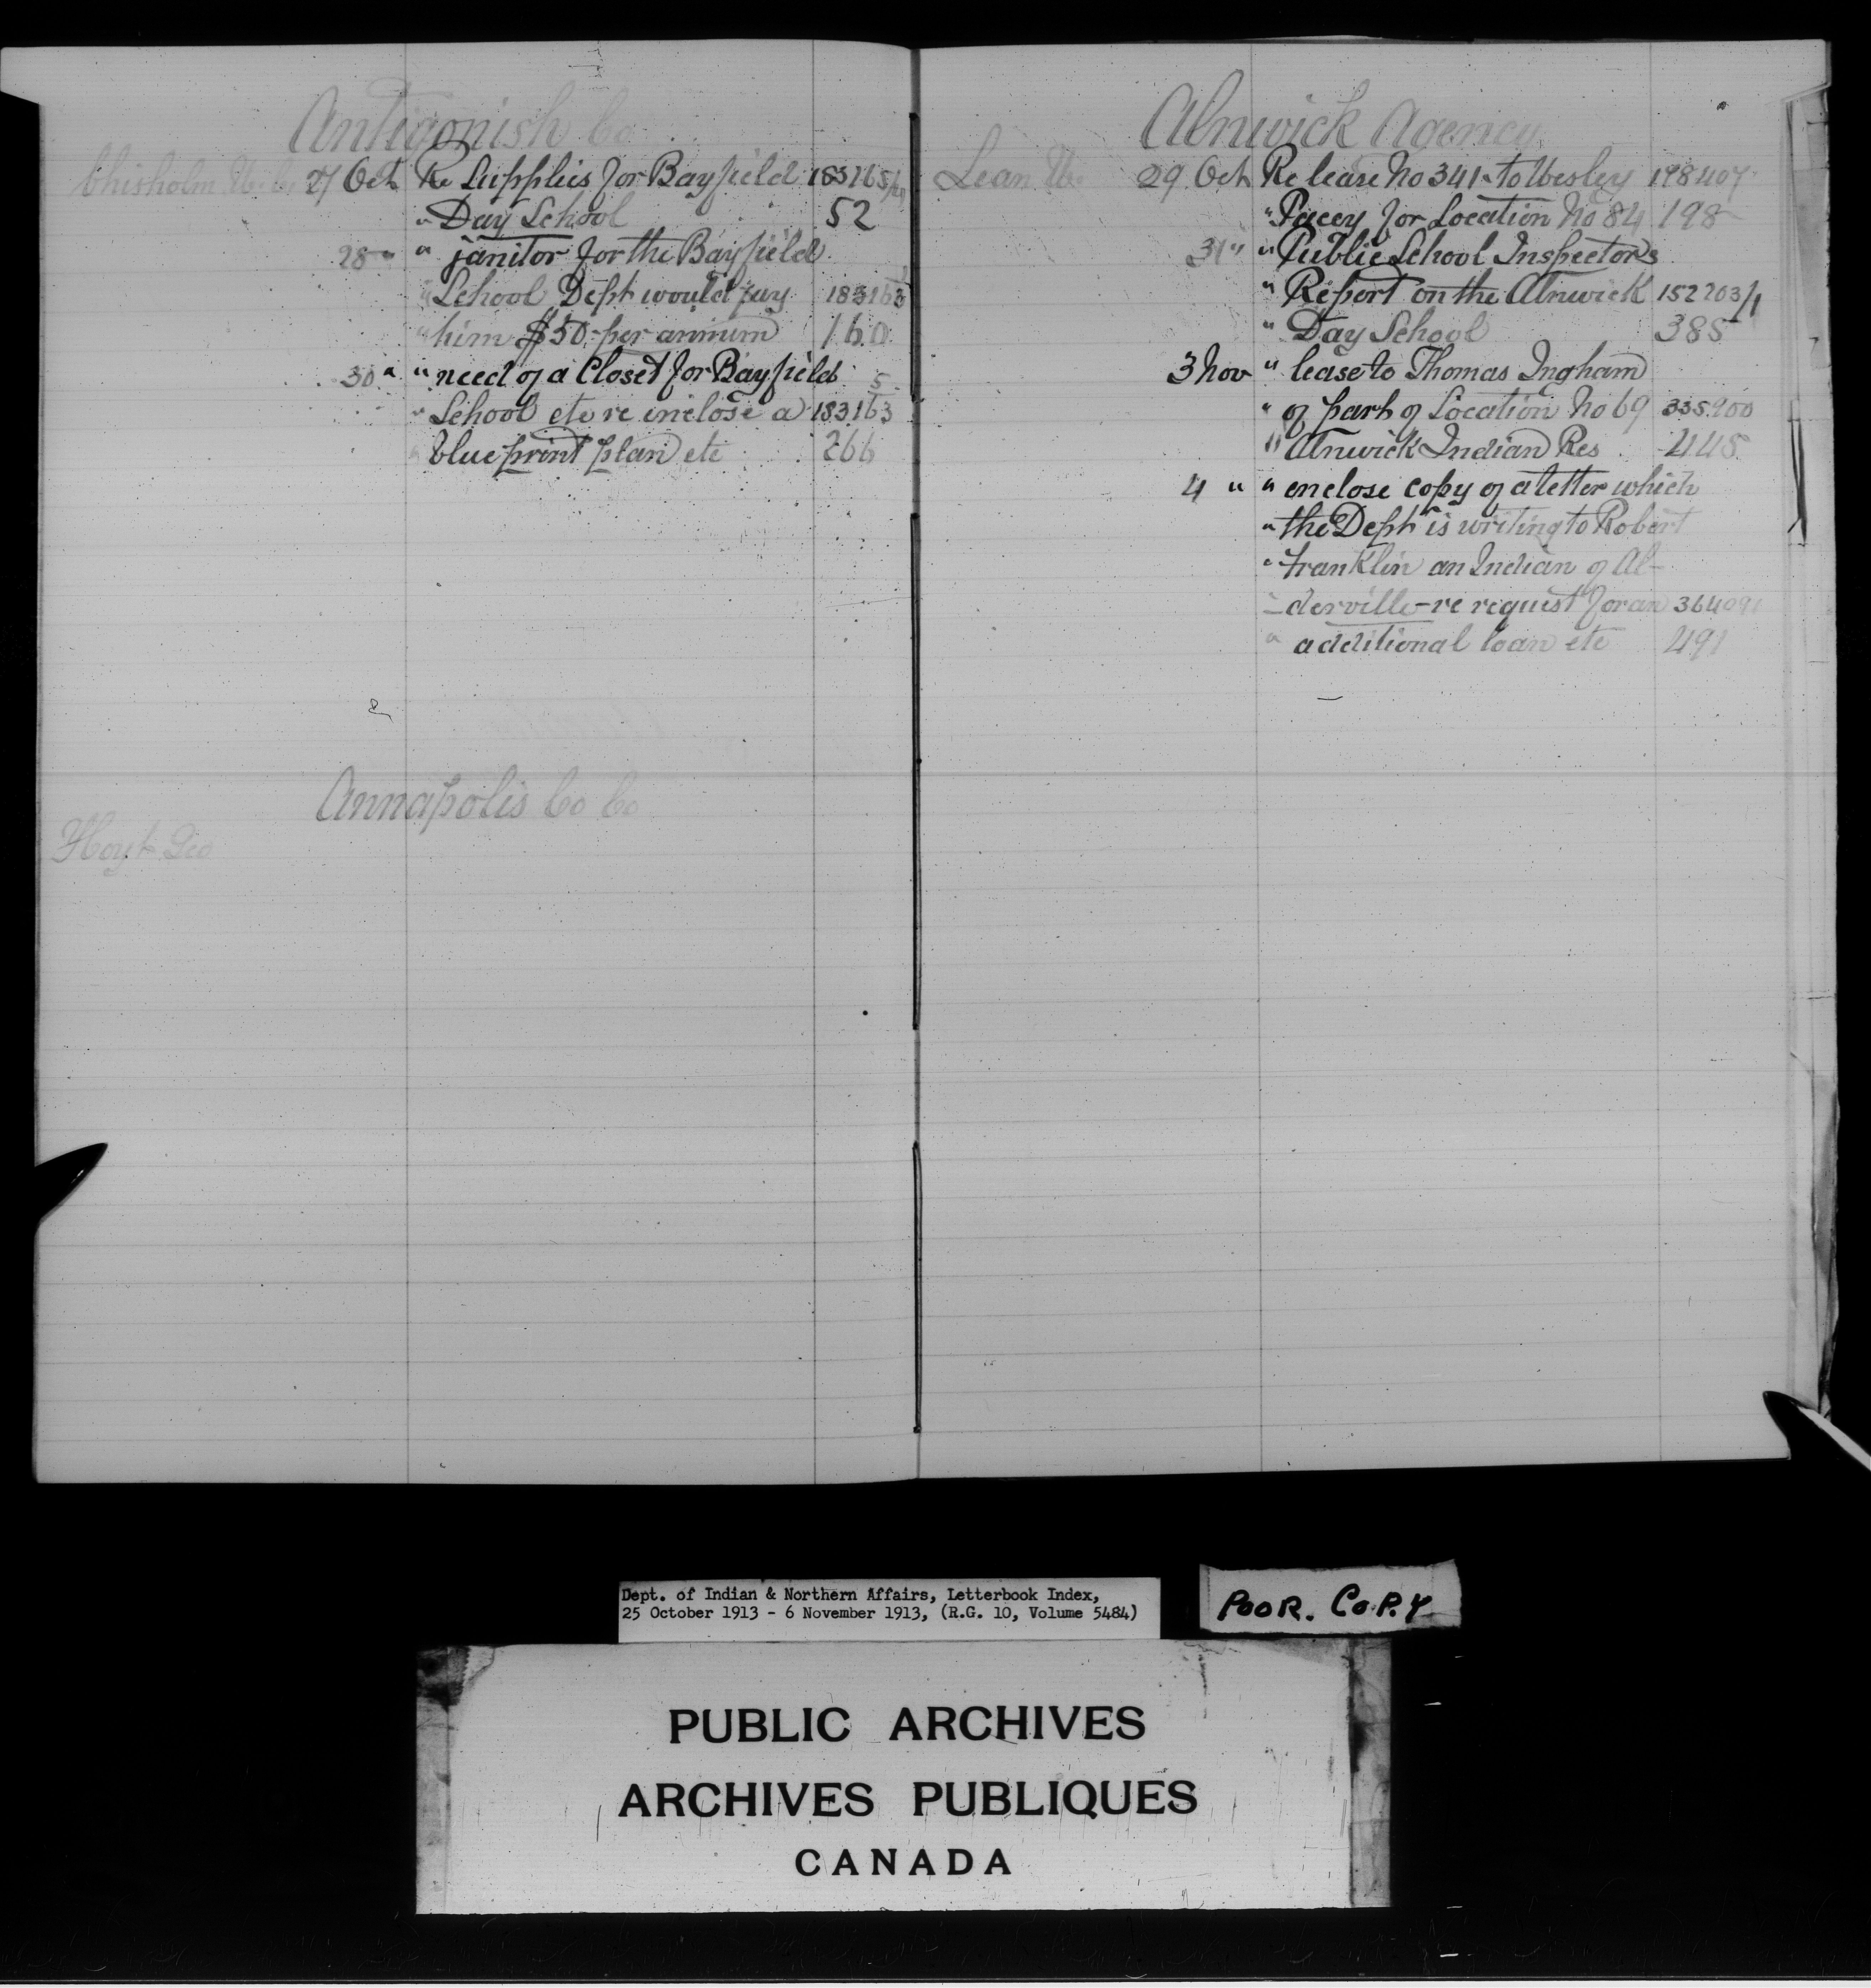 Antigonish Co
Chisholm W. 27 Oct Re Supplies for Bayfield 183165/4
" Day School 52
28 " " janitor for the Bayfield
" School Dept would pay 183163
" him $50 per annum 160
30 " " need of a Closet for Bayfield 5
" School etc re inclose a 183163
" blue print plan etc 266
Annapolis Co Co
Hoyt Geo
Alnwick Agency
Lean W. 29 Oct Re lease No 341 - to Wesley 198407
" Pacey for Location No 84 198
31 " " Public School Inspectors
" Report on the Alnwick 152203/1
" Day School 385
3 Nov " lease to Thomas Ingham
" of part of Location No 69 335900
" Alnwick Indian Res 445
4 " " enclose copy of a letter which
" the Dept is writing to Robert
" Franklin an Indian of Al-
" derville - re request for an 364091
" additional loan etc 491
Dept. of Indian & Northern Affairs, Letterbook Index,
25 October 1913 - 6 November 1913, (R.G. 10, Volume 5484)
POOR. COPY
PUBLIC ARCHIVES
ARCHIVES PUBLIQUES
CANADA